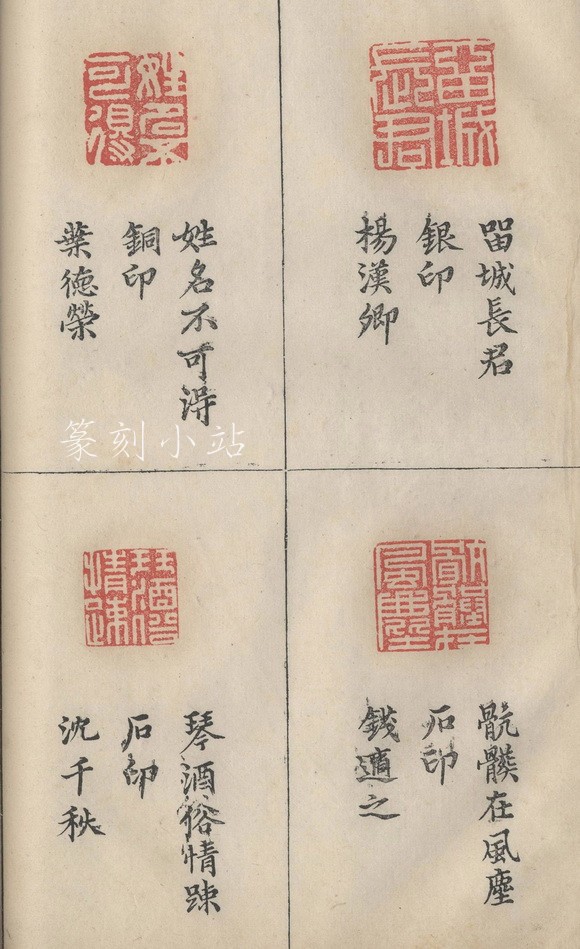 㽞城長君
銀印
楊漢卿
姓名不可淂
銅印
葉徳榮
骯髒在風塵
石印
錢適之
琴酒俗情踈
石印
沈千秋
篆刻小站